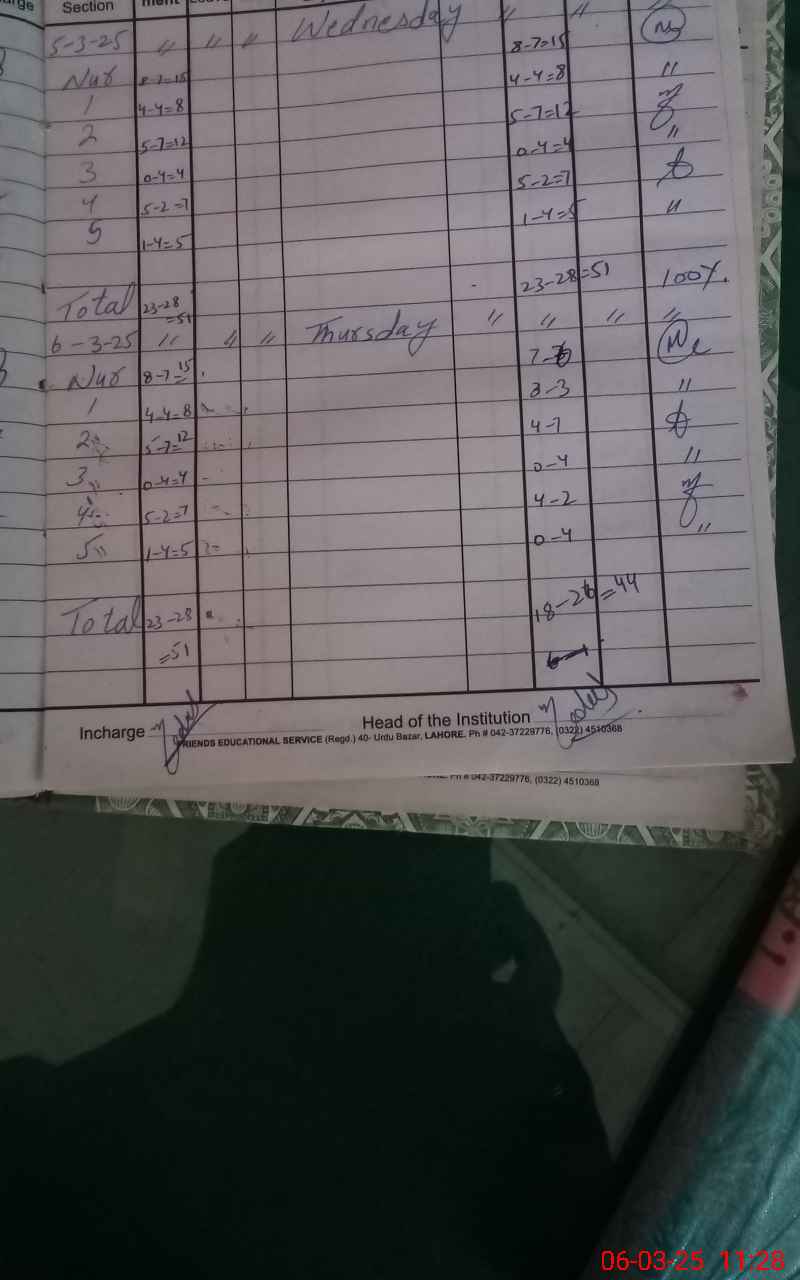 Section
5-3-25 〃 〃 〃 Wednesday 〃 〃 〃
8-7=15
Nur 8-7=15 4-4=8 〃
1 4-4=8 5-7=12
2 5-7=12 0-4=4 〃
3 0-4=4 5-2=7
4 5-2=7 1-4=5 〃
5 1-4=5
Total 23-28 =51 23-28=51 100%.
6-3-25 〃 〃 〃 Thursday 〃 〃 〃 〃
Nur 8-7=15
1 4-4=8 3-3 〃
2 5-7=12 4-7
3 0-4=4 0-4 〃
4 5-2=7 4-2
5 1-4=5 0-4 〃
Total 23-28 18-26=44
=51
Incharge Head of the Institution
FRIENDS EDUCATIONAL SERVICE (Regd.) 40- Urdu Bazar, LAHORE. Ph # 042-37229776, (0322) 4510368
Ph # 042-37229776, (0322) 4510368
06-03-25 11:28